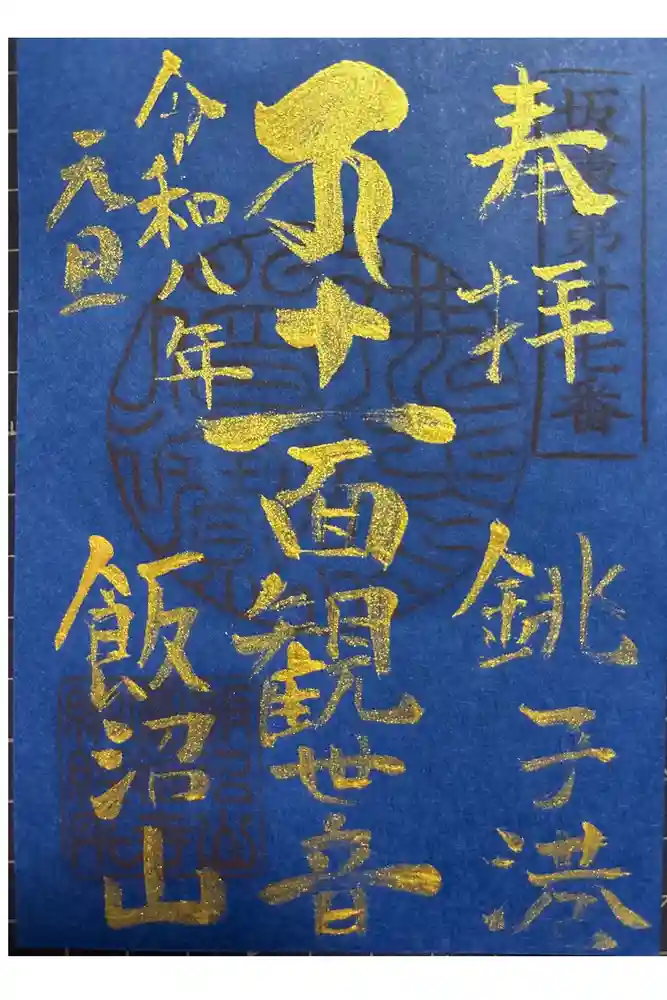 奉拝
坂東第廿七番
銚子港
十一面観世音
令和八年
元旦
飯沼山